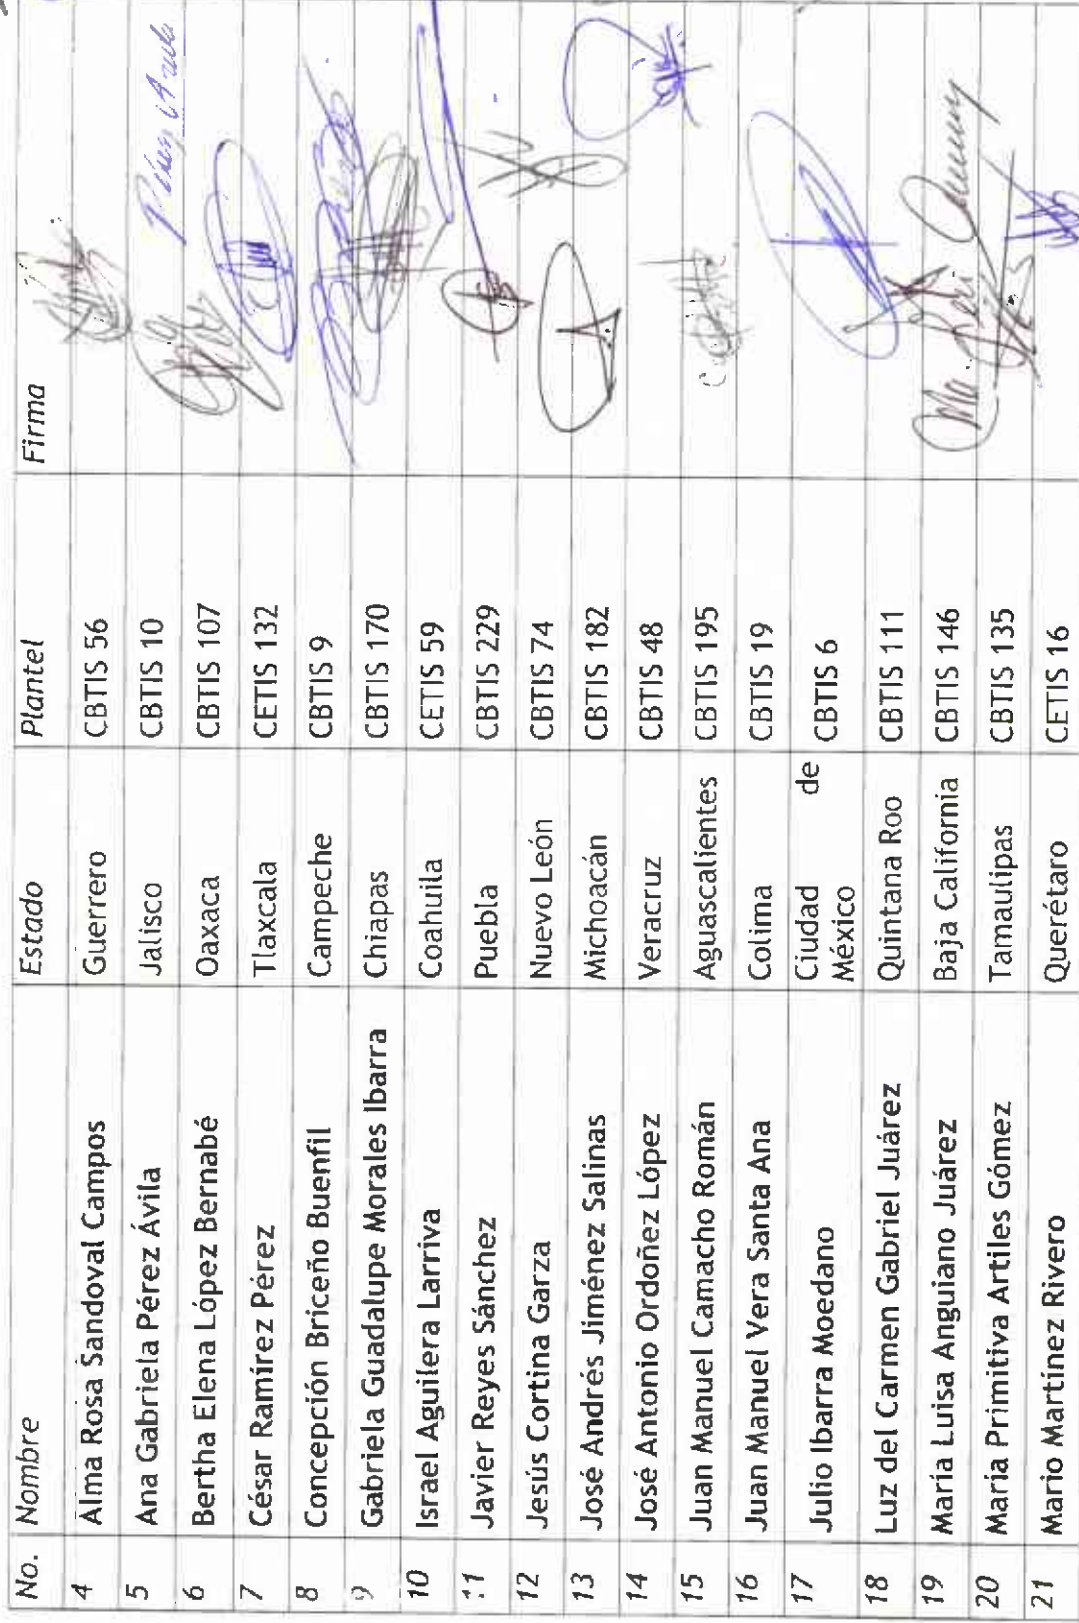 No. Nombre Estado Plantel Firma
4 Alma Rosa Sandoval Campos Guerrero CBTIS 56
5 Ana Gabriela Pérez Ávila Jalisco CBTIS 10
6 Bertha Elena López Bernabé Oaxaca CBTIS 107
7 César Ramírez Pérez Tlaxcala CETIS 132
8 Concepción Briceño Buenfil Campeche CBTIS 9
9 Gabriela Guadalupe Morales Ibarra Chiapas CBTIS 170
10 Israel Aguilera Larriva Coahuila CETIS 59
11 Javier Reyes Sánchez Puebla CBTIS 229
12 Jesús Cortina Garza Nuevo León CBTIS 74
13 José Andrés Jiménez Salinas Michoacán CBTIS 182
14 José Antonio Ordoñez López Veracruz CBTIS 48
15 Juan Manuel Camacho Román Aguascalientes CBTIS 195
16 Juan Manuel Vera Santa Ana Colima CBTIS 19
17 Julio Ibarra Moedano Ciudad de CBTIS 6
México
18 Luz del Carmen Gabriel Juárez Quintana Roo CBTIS 111
19 María Luisa Anguiano Juárez Baja California CBTIS 146
20 María Primitiva Artiles Gómez Tamaulipas CBTIS 135
21 Mario Martínez Rivero Querétaro CETIS 16